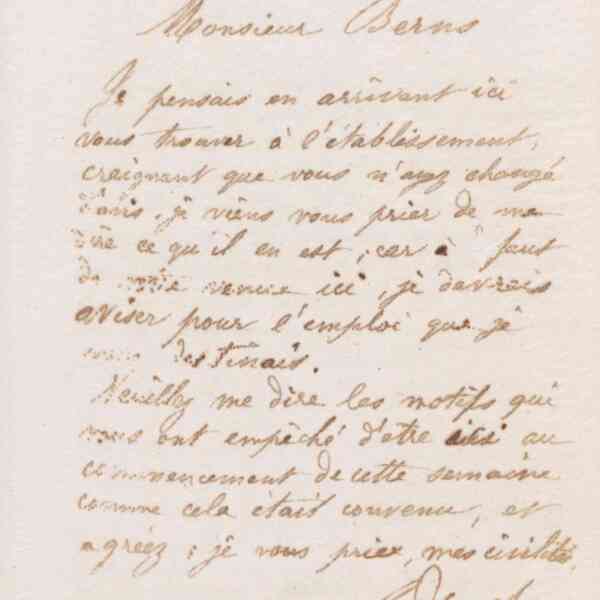 Monsieur Berns
Je pensais en arrivant ici
vous trouver à l'établissement,
craignant que vous n'ayez changé
d'avis, je viens vous prier de me
dire ce qu'il en est, car à faut
de votre venue ici, je devrais
aviser pour l'emploi que je
vous destinais.
Veuillez me dire les motifs qui
vous ont empêché d'être ici au
commencement de cette semaine
comme cela était convenu, et
agréez, je vous prie, mes civilités,